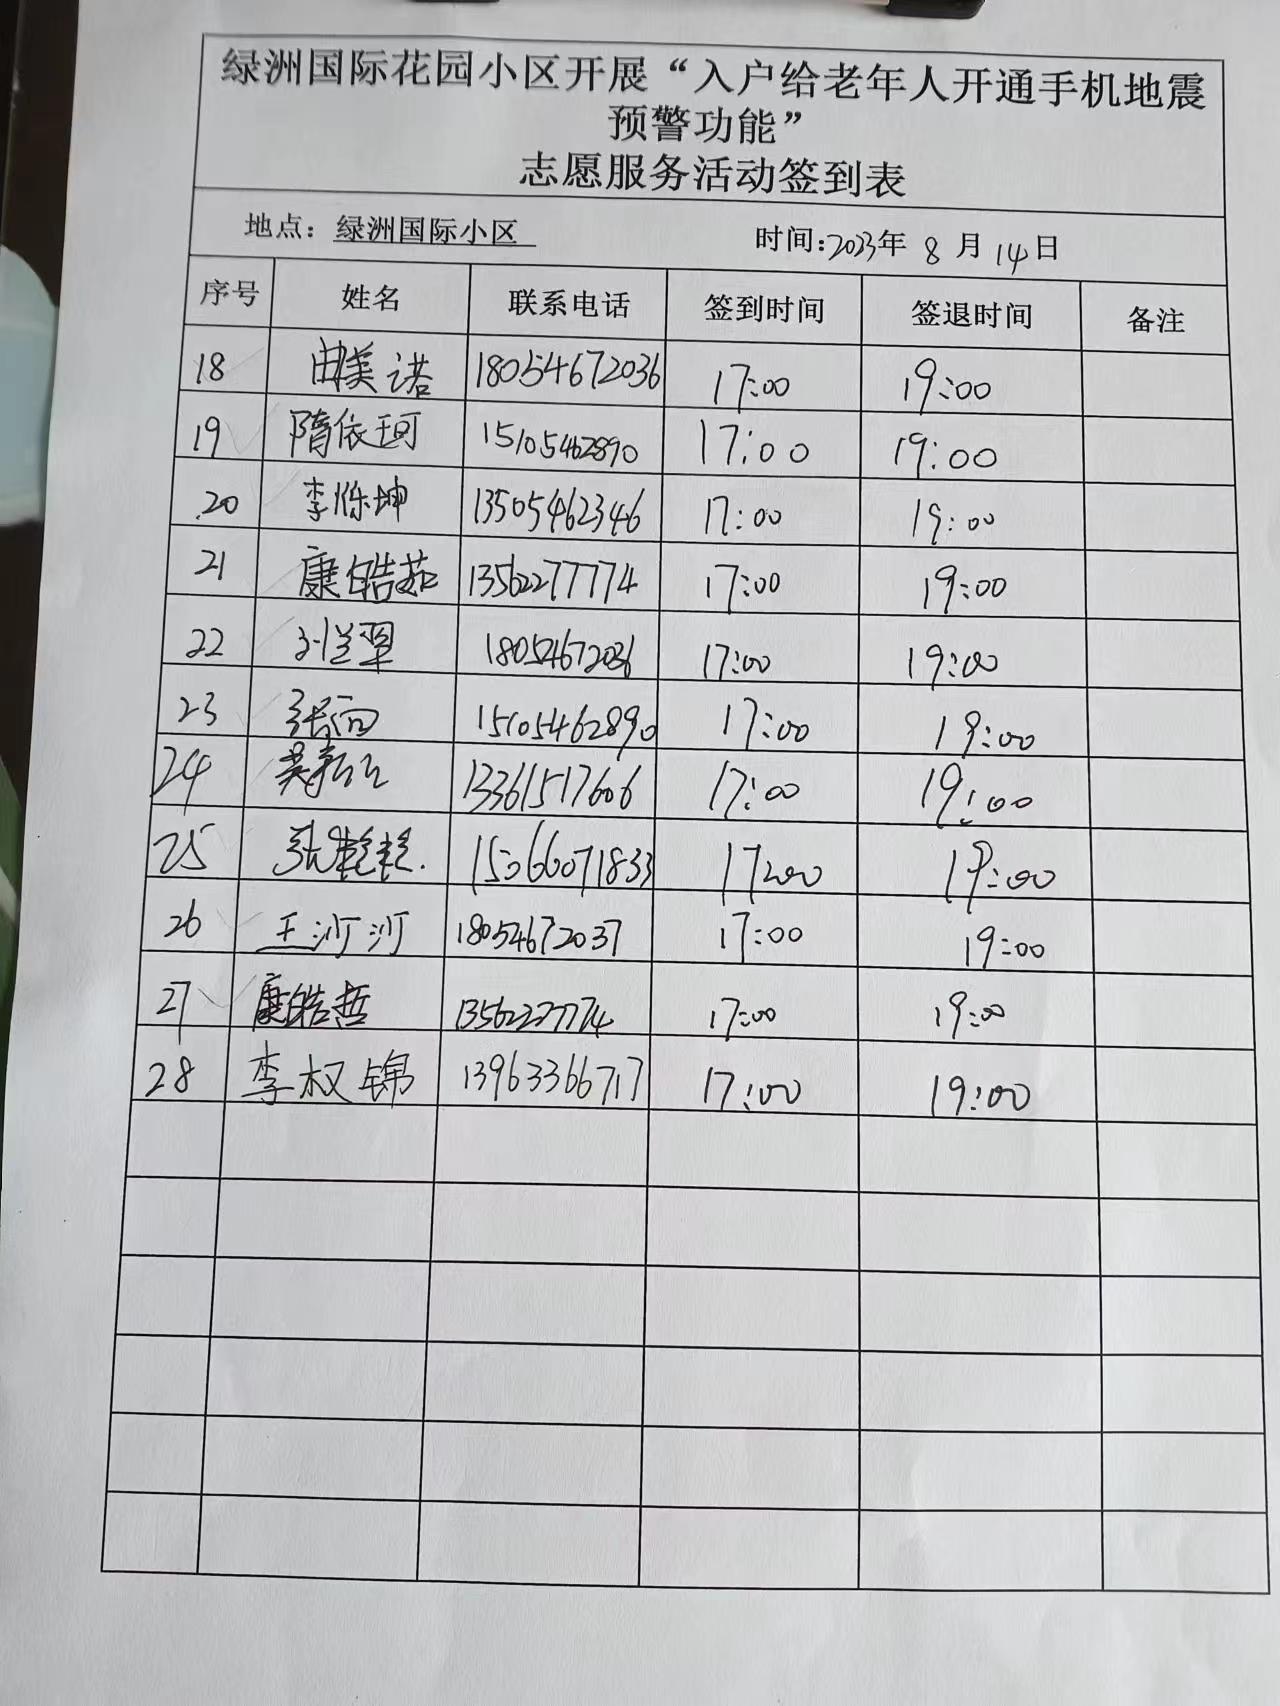 绿洲国际花园小区开展“入户给老年人开通手机地震
预警功能”
志愿服务活动签到表
地点：绿洲国际小区 时间:2023年 8 月 14日
序号 姓名 联系电话 签到时间 签退时间 备注
18 曲美诺 18054672036 17:00 19:00
19 隋依珂 15105462890 17:00 19:00
20 李烁坤 13505462346 17:00 19:00
21 康皓茹 13562277774 17:00 19:00
22 18054672036 17:00 19:00
23 张雨 15105462890 17:00 19:00
24 13361517606 17:00 19:00
25 15066071833 17:00 19:00
26 王沙沙 18054672037 17:00 19:00
27 康皓哲 13562277774 17:00 19:00
28 李权锦 13963366717 17:00 19:00